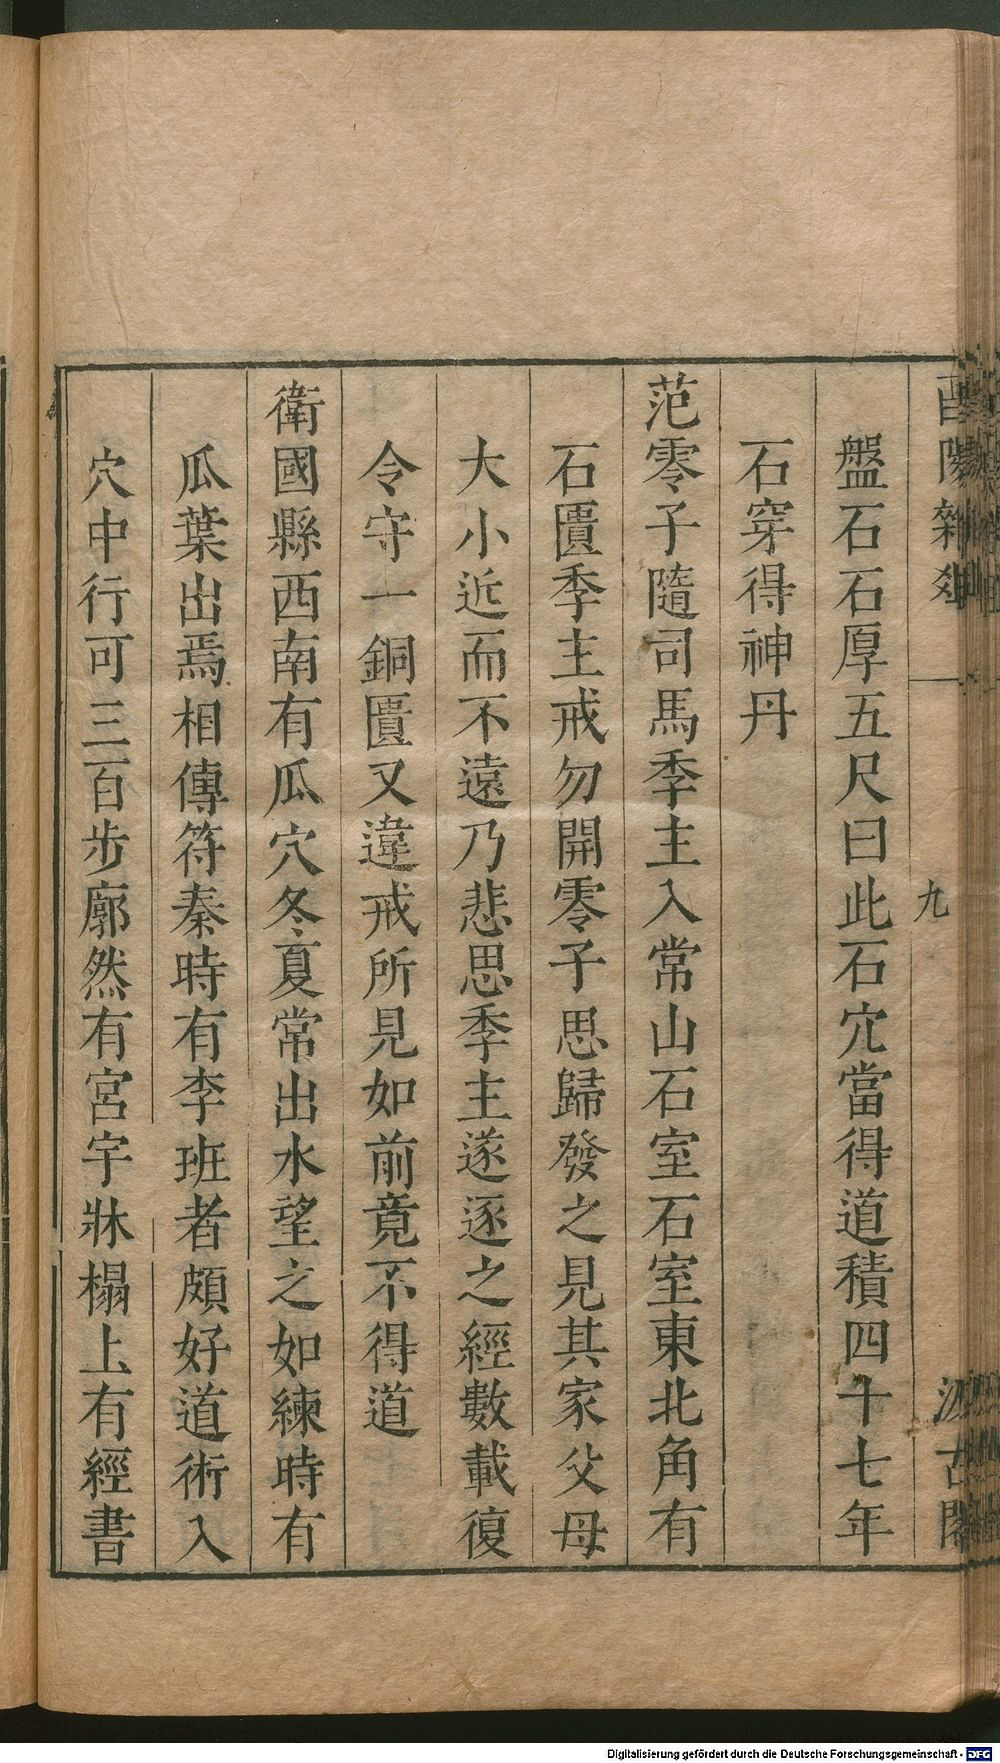 酉陽雜俎
九
汲古閣
盤石石厚五尺曰此石穴當得道積四十七年
石穿得神丹
范零子隨司馬季主入常山石室石室東北角有
石匱季主戒勿開零子思歸發之見其家父母
大小近而不遠乃悲思季主遂逐之經數載復
令守一銅匱又違戒所見如前竟不得道
衛國縣西南有瓜穴冬夏常出水望之如練時有
瓜葉出焉相傳符秦時有李班者頗好道術入
穴中行可三百步廓然有宮宇牀榻上有經書
Digitalisierung gefördert durch die Deutsche Forschungsgemeinschaft - DFG